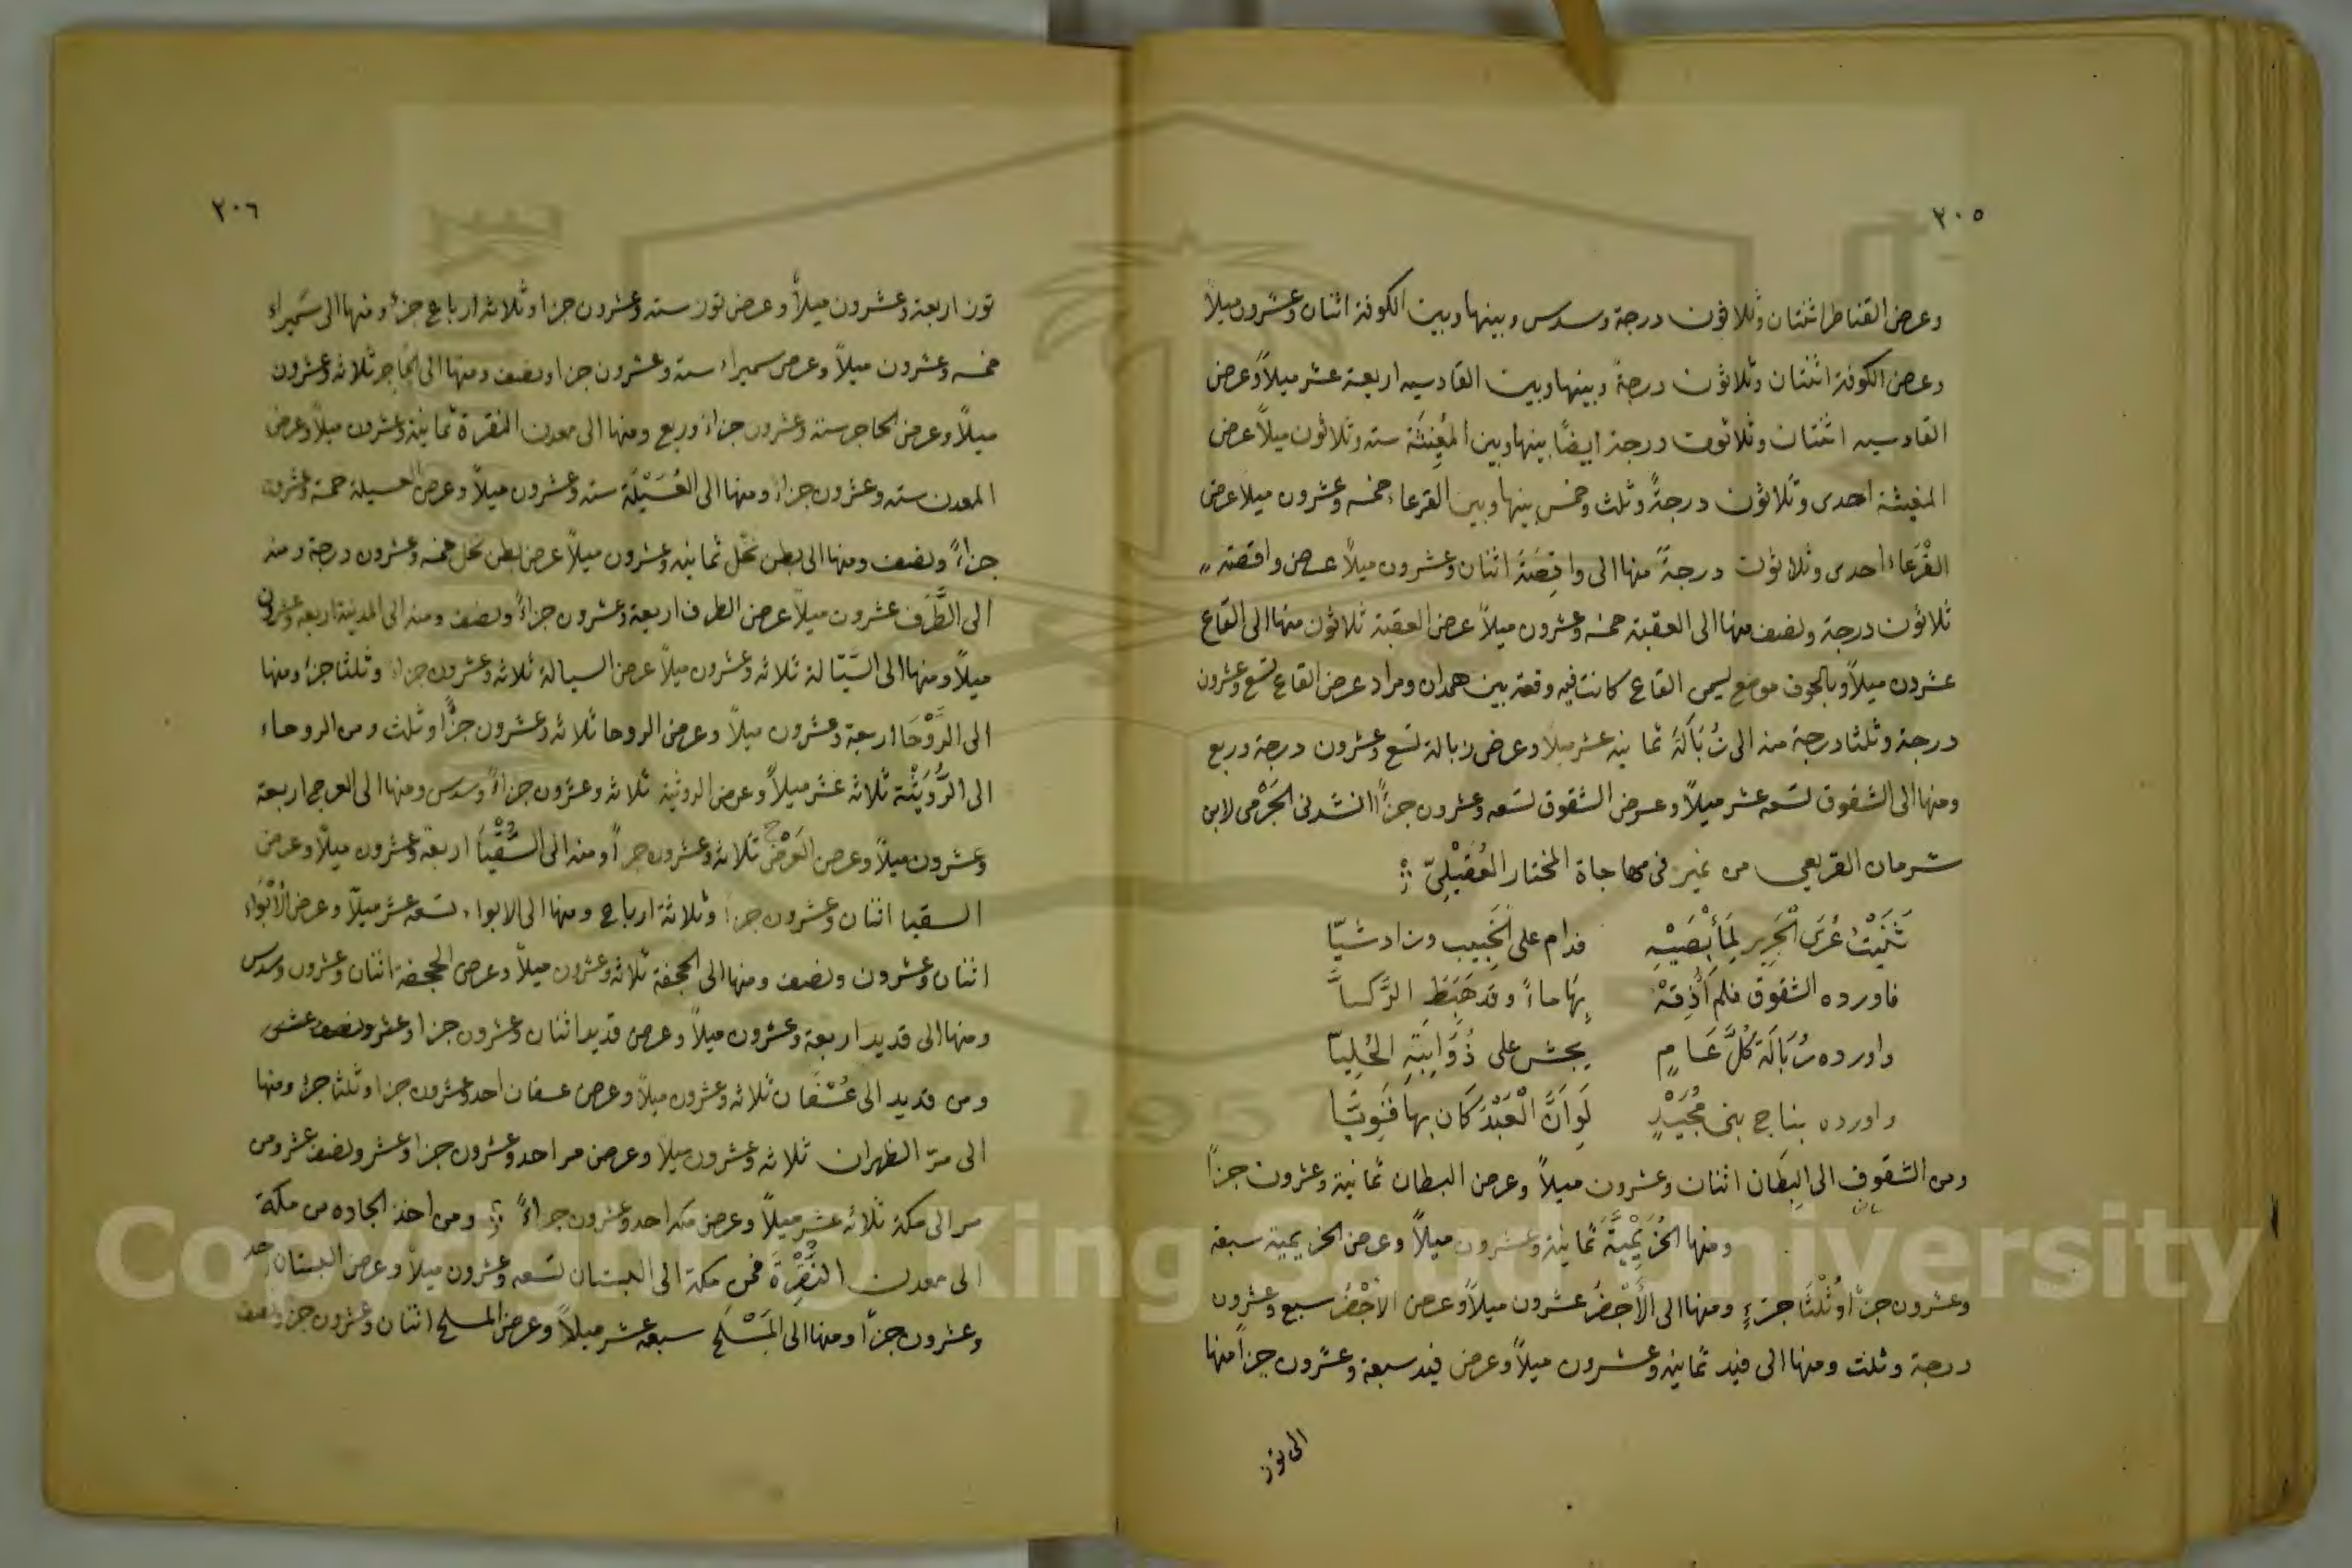 ٢٠٥
وعرض القناطر اثنتان وثلاثون درجة وسدس وبينها وبين الكوفة اثنان وعشرون ميلاً
وعرض الكوفة اثنتان وثلاثون درجة وبينها وبين القادسيه اربعة عشر ميلاً وعرض
القادسيه اثنتان وثلاثون درجة ايضاً بينها وبين المُغِيثَة سته وثلاثون ميلاً عرض
المغيثة احدى وثلاثون درجةً وثلث وخمس بينها وبين القرعاء خمسه وعشرون ميلا عرض
القَرْعاء احدى وثلاثون درجةً منها الى واقِصَةَ اثنان وعشرون ميلاً عرض واقصة
ثلاثون درجة ونصف منها الى العقبة خمسه وعشرون ميلاً عرض العقبة ثلاثون منها الى القاع
عشرون ميلاً وبالجوف موضع ليمى القاع كانت فيه وقعة بين همدان ومراد عرض القاع تسع وعشرون
درجة وثلثا درجة منه الى زُبَالَةَ ثمانيه عشر ميلاً وعرض زبالة تسع وعشرون درجة وربع
ومنها الى الشقوق تسعه عشر ميلاً وعرض الشقوق تسعه وعشرون جزأً انشدنى الجَرْمى لابن
شرمان القريعي من نمير فى مهاجاة المختار العُقَيْلِىّ
ثَنَيْتُ عُرَى الْجَرِيرِ لِمَأبْضَيْهِ فدام على الخَبِيب وزاد شيّا
فاورده الشقوق فلم أُذِقهْ بِهَا ماءً وقد هَبَطَ الرَّكيَّا
واورده زُبَالَة كُلَّ عَامٍ يحش على ذُوَّابَتِهِ الحُلِيّا
واورده بناج بنى مُجَيْدٍ لَوَانَّ الْعَبْدَ كان بها قَنَوِيّا
ومن الشقوق الى البِطَان اثنان وعشرون ميلاً وعرض البطان ثمانية وعشرون جزأً
ومنها الخُزَيْمِيَّةَ ثمانية وعشرون ميلاً وعرض الخزيمية سبعة
وعشرون جزأً وثُلْثَا جزءٍ ومنها الى الأَجْفُرُ عشرون ميلاً وعرض الأَجْفُر سبع وعشرون
درجة وثلث ومنها الى فيد ثمانيه وعشرون ميلاً وعرض فيد سبعة وعشرون جزأً منها
الى توز
٢٠٦
توز اربعة وعشرون ميلاً وعرض توز سته وعشرون جزا وثلاثه ارباع جزءٍ ومنها الى سَميراء
خمسه وعشرون ميلاً وعرض سميراء سته وعشرون جزا ونصف ومنها الى الحاجر ثلاثه وعشرون
ميلاً وعرض الحاجر ستة وعشرون جزاءً وربع ومنها الى معدن النقرة ثمانية وعشرون ميلاً وعرض
المعدن سته وعشرون جزاءً ومنها الى العُسَيْلَة سته وعشرون ميلاً وعرض العسيلة خمسة وعشرون
جزاءً ونصف ومنها الى بطن نخْل ثمانيه وعشرون ميلاً عرض بطن نخل خمسه وعشرون درجة ومنه
الى الطَّرَف عشرون ميلاً عرض الطرف اربعة وعشرون جزاءً ونصف ومنه الى المدينة اربعه وعشرون
ميلاً ومنها الى السَّيَالة ثلاثه وعشرون ميلاً عرض السيالة ثلاثه وعشرون جزاء وثلثا جزءٍ ومنها
الى الرَّوْحَا اربعة وعشرون ميلاً وعرض الروحا ثلاثه وعشرون جزًّا وثلث ومن الروحاء
الى الرُّوَيثَة ثلاثه عشر ميلاً وعرض الروثية ثلاثه وعشرون جزاءً وسدس ومنها الى العرج اربعة
وعشرون ميلاً وعرض العَرْج ثلاثه وعشرون جزأً ومنه الى السُّقْيَا اربعة وعشرون ميلاً وعرض
السقيا اثنان وعشرون جزأ وثلاثة ارباع ومنها الى الابواء تسعه عشر ميلاً وعرض الأَبْوَاء
اثنان وعشرون ونصف ومنها الى الجحفة ثلاثه وعشرون ميلاً وعرض الجحفة اثنان وعشرون وسدس
ومنها الى قديد اربعة وعشرون ميلاً وعرض قديد اثنان وعشرون جزا وعشر ونصف عشر
ومن قديد الى عُسْفَان ثلاثه وعشرون ميلاً وعرض عسفان احد وعشرون جزا وثلثا جزء ومنها
الى مرّ الظهران ثلاثه وعشرون ميلاً وعرض مر احد وعشرون جزا وعشر ونصف عشر ومن
مر الى مكة ثلاثه عشر ميلاً وعرض مكه احد وعشرون جزاءً ومن اخذ الجاده من مكة
الى معدن النَّقْرَة فمن مكة الى البستان تسعه وعشرون ميلاً وعرض البستان احد
وعشرون جزأ ومنها الى المَسْلَح سبعه عشر ميلاً وعرض المسلح اثنان وعشرون جزء ونصف
Copyright © King Saud University
1957